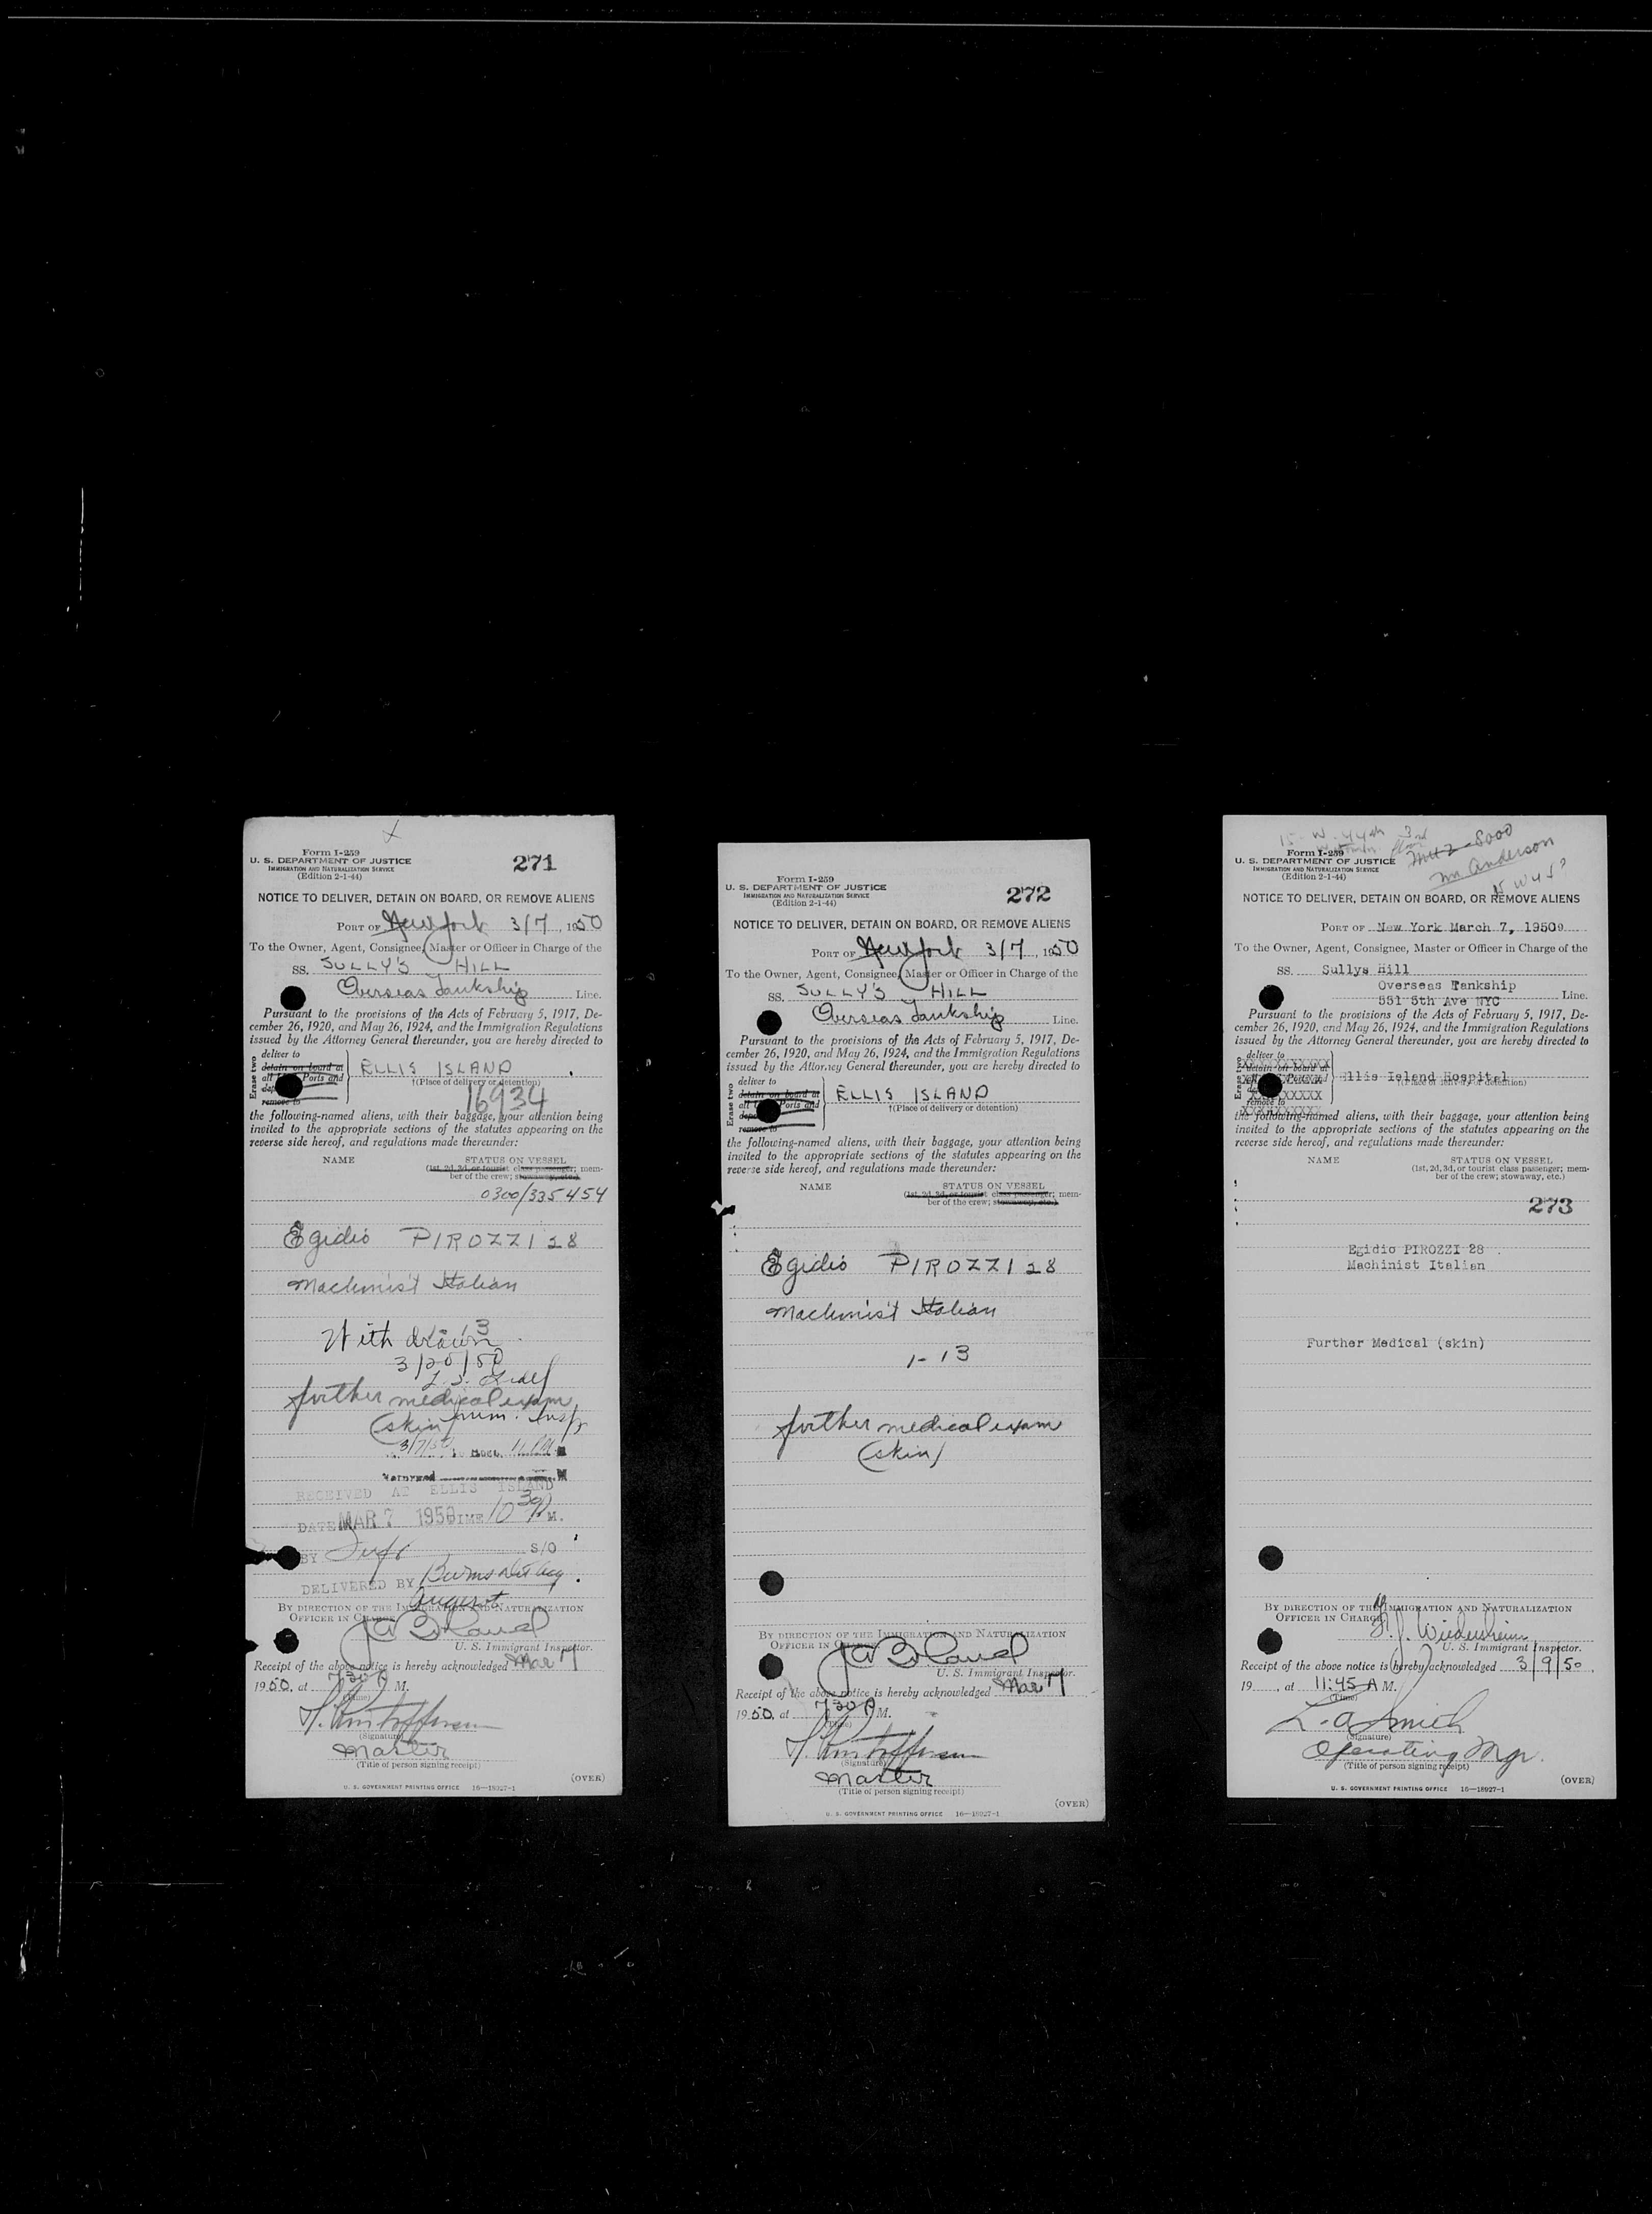 Form I-259
U. S. DEPARTMENT OF JUSTICE
IMMIGRATION AND NATURALIZATION SERVICE
(Edition 2-1-44)
271
NOTICE TO DELIVER, DETAIN ON BOARD, OR REMOVE ALIENS
PORT OF New York 3/7, 1950
To the Owner, Agent, Consignee, Master or Officer in Charge of the
SS. SULLY'S HILL
Overseas Tankship Line.
Pursuant to the provisions of the Acts of February 5, 1917, De-
cember 26, 1920, and May 26, 1924, and the Immigration Regulations
issued by the Attorney General thereunder, you are hereby directed to
Erase two
deliver to
detain on board at
all Ports and
remove to
ELLIS ISLAND
†(Place of delivery or detention)
16934
the following-named aliens, with their baggage, your attention being
invited to the appropriate sections of the statutes appearing on the
reverse side hereof, and regulations made thereunder:
NAME STATUS ON VESSEL
(1st, 2d, 3d, or tourist class passenger; mem-
ber of the crew; stowaway, etc.)
0300/335454
Egidio PIROZZI 28
Machinist Italian
With drawn
3/20/50
further medical exam
(skin)
Imm. Insp
3/7/50
Returned
RECEIVED AT ELLIS ISLAND
DATE MAR 7 1950 TIME 10 30 P M.
BY S/O
DELIVERED BY Burns Det Agy.
BY DIRECTION OF THE IMMIGRATION AND NATURALIZATION
OFFICER IN CHARGE
U. S. Immigrant Inspector.
Receipt of the above notice is hereby acknowledged Mar 7
1950, at 7:30 P M.
(Time)
(Signature)
Master
(Title of person signing receipt)
(OVER)
U. S. GOVERNMENT PRINTING OFFICE 16—18927-1
Form I-259
U. S. DEPARTMENT OF JUSTICE
IMMIGRATION AND NATURALIZATION SERVICE
(Edition 2-1-44)
272
NOTICE TO DELIVER, DETAIN ON BOARD, OR REMOVE ALIENS
PORT OF New York 3/7, 1950
To the Owner, Agent, Consignee, Master or Officer in Charge of the
SS. SULLY'S HILL
Overseas Tankship Line.
Pursuant to the provisions of the Acts of February 5, 1917, De-
cember 26, 1920, and May 26, 1924, and the Immigration Regulations
issued by the Attorney General thereunder, you are hereby directed to
Erase two
deliver to
detain on board at
all Ports and
remove to
ELLIS ISLAND
†(Place of delivery or detention)
the following-named aliens, with their baggage, your attention being
invited to the appropriate sections of the statutes appearing on the
reverse side hereof, and regulations made thereunder:
NAME STATUS ON VESSEL
(1st, 2d, 3d, or tourist class passenger; mem-
ber of the crew; stowaway, etc.)
Egidio PIROZZI 28
Machinist Italian
1-13
further medical exam
(skin)
BY DIRECTION OF THE IMMIGRATION AND NATURALIZATION
OFFICER IN CHARGE
U. S. Immigrant Inspector.
Receipt of the above notice is hereby acknowledged Mar 7
1950, at 7:30 P M.
(Time)
(Signature)
Master
(Title of person signing receipt)
(OVER)
U. S. GOVERNMENT PRINTING OFFICE 16—18927-1
15 W. 44th 3rd
floor
8000
Mr. Anderson
Form I-259
U. S. DEPARTMENT OF JUSTICE
IMMIGRATION AND NATURALIZATION SERVICE
(Edition 2-1-44)
NOTICE TO DELIVER, DETAIN ON BOARD, OR REMOVE ALIENS
PORT OF New York March 7, 19500
To the Owner, Agent, Consignee, Master or Officer in Charge of the
SS. Sullys Hill
Overseas Tankship
551 5th Ave NYC Line.
Pursuant to the provisions of the Acts of February 5, 1917, De-
cember 26, 1920, and May 26, 1924, and the Immigration Regulations
issued by the Attorney General thereunder, you are hereby directed to
Erase two
deliver to
detain on board at
remove to
Ellis Island Hospital
†(Place of delivery or detention)
the following-named aliens, with their baggage, your attention being
invited to the appropriate sections of the statutes appearing on the
reverse side hereof, and regulations made thereunder:
NAME STATUS ON VESSEL
(1st, 2d, 3d, or tourist class passenger; mem-
ber of the crew; stowaway, etc.)
273
Egidio PIROZZI 28
Machinist Italian
Further Medical (skin)
BY DIRECTION OF THE IMMIGRATION AND NATURALIZATION
OFFICER IN CHARGE
U. S. Immigrant Inspector.
Receipt of the above notice is hereby acknowledged 3/9/50
19, at 11:45 A M.
(Time)
L. A Smith
(Signature)
Operating Mgr.
(Title of person signing receipt)
(OVER)
U. S. GOVERNMENT PRINTING OFFICE 16—18927-1